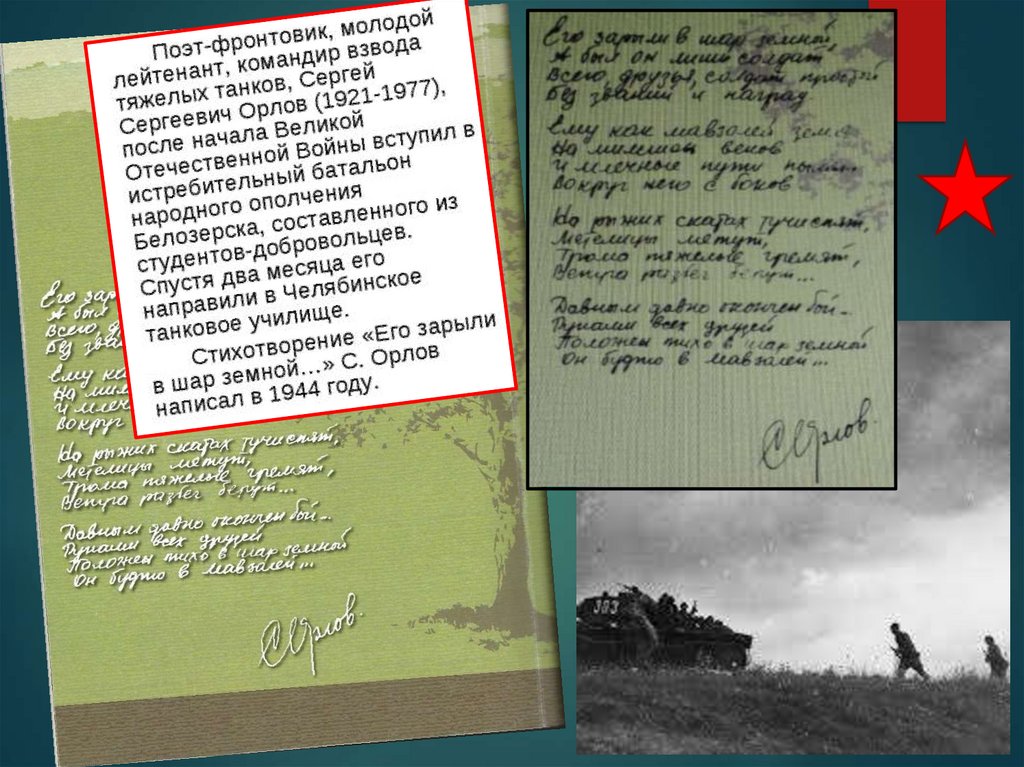 Поэт-фронтовик, молодой
лейтенант, командир взвода
тяжелых танков, Сергей
Сергеевич Орлов (1921-1977),
после начала Великой
Отечественной Войны вступил в
истребительный батальон
народного ополчения
Белозерска, составленного из
студентов-добровольцев.
Спустя два месяца его
направили в Челябинское
танковое училище.
Стихотворение «Его зарыли
в шар земной…» С. Орлов
написал в 1944 году.
Его зарыли в шар земной,
А был он лишь солдат
Всего, друзья, солдат простой
Без званий и наград
Ему как мавзолей земля
На миллион веков
И млечные пути пылят
Вокруг него с боков
На рыжих скатах тучи спят,
Метелицы метут,
Грома тяжелые гремят,
Ветра разбег берут...
Давным давно окончен бой...
Руками всех друзей
Положен тихо в шар земной
Он будто в мавзолей...
СОрлов.
Его зар
А был
Всего, д
Без зва
Ему ка
На мил
И млеч
Вокруг
На рыжих скатах тучи спят,
Метелицы метут,
Грома тяжелые гремят,
Ветра разбег берут...
Давным давно окончен бой...
Руками всех друзей
Положен тихо в шар земной
Он будто в мавзолей...
СОрлов.
303